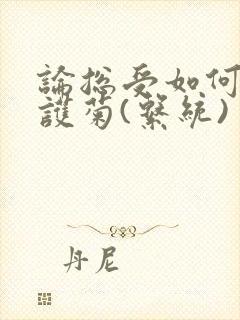 論總受如何
護菊(繫統)
丹尼